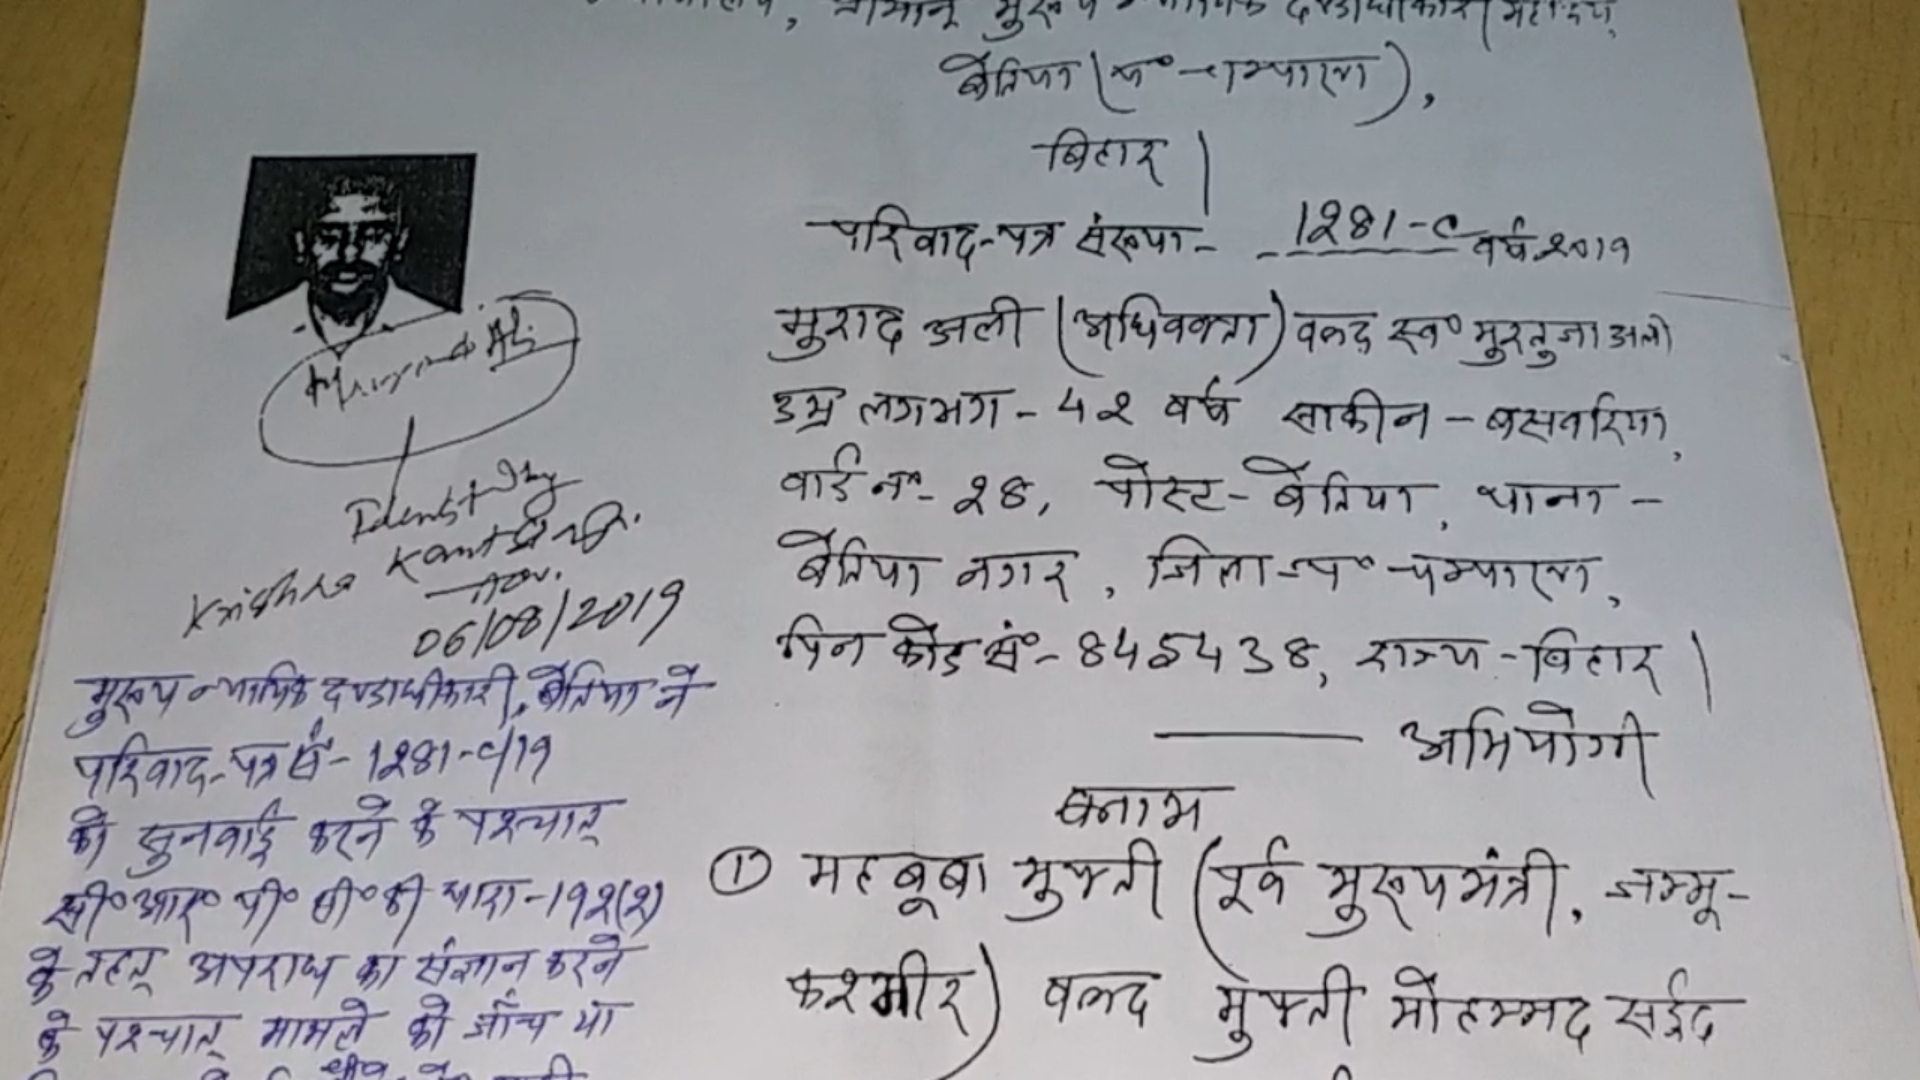 मुख्य न्यायिक दण्डाधिकारी महोदय,
बेतिया (प० चम्पारण),
बिहार।
परिवाद-पत्र संख्या- 1281-C वर्ष 2019
मुराद अली (अधिवक्ता) वल्द स्व० मुरतुजा अली
उम्र लगभग - 42 वर्ष साकीन - बसवरिया,
वार्ड नं०- 28, पोस्ट- बेतिया, थाना -
बेतिया नगर, जिला- प० चम्पारण,
पिन कोड सं०- 845438, राज्य - बिहार।
अभियोगी
बनाम
① महबूबा मुफ्ती (पूर्व मुख्यमंत्री, जम्मू-
कश्मीर) वल्द मुफ्ती मोहम्मद सईद
Murad Ali
Krishna Kant
06/08/2019
मुख्य न्यायिक दण्डाधिकारी, बेतिया ने
परिवाद-पत्र सं- 1281-C/19
को सुनवाई करने के पश्चात्
सी० आर० पी० सी० की धारा-192(2)
के तहत् अपराध का संज्ञान करने
के पश्चात् मामले को जाँच या